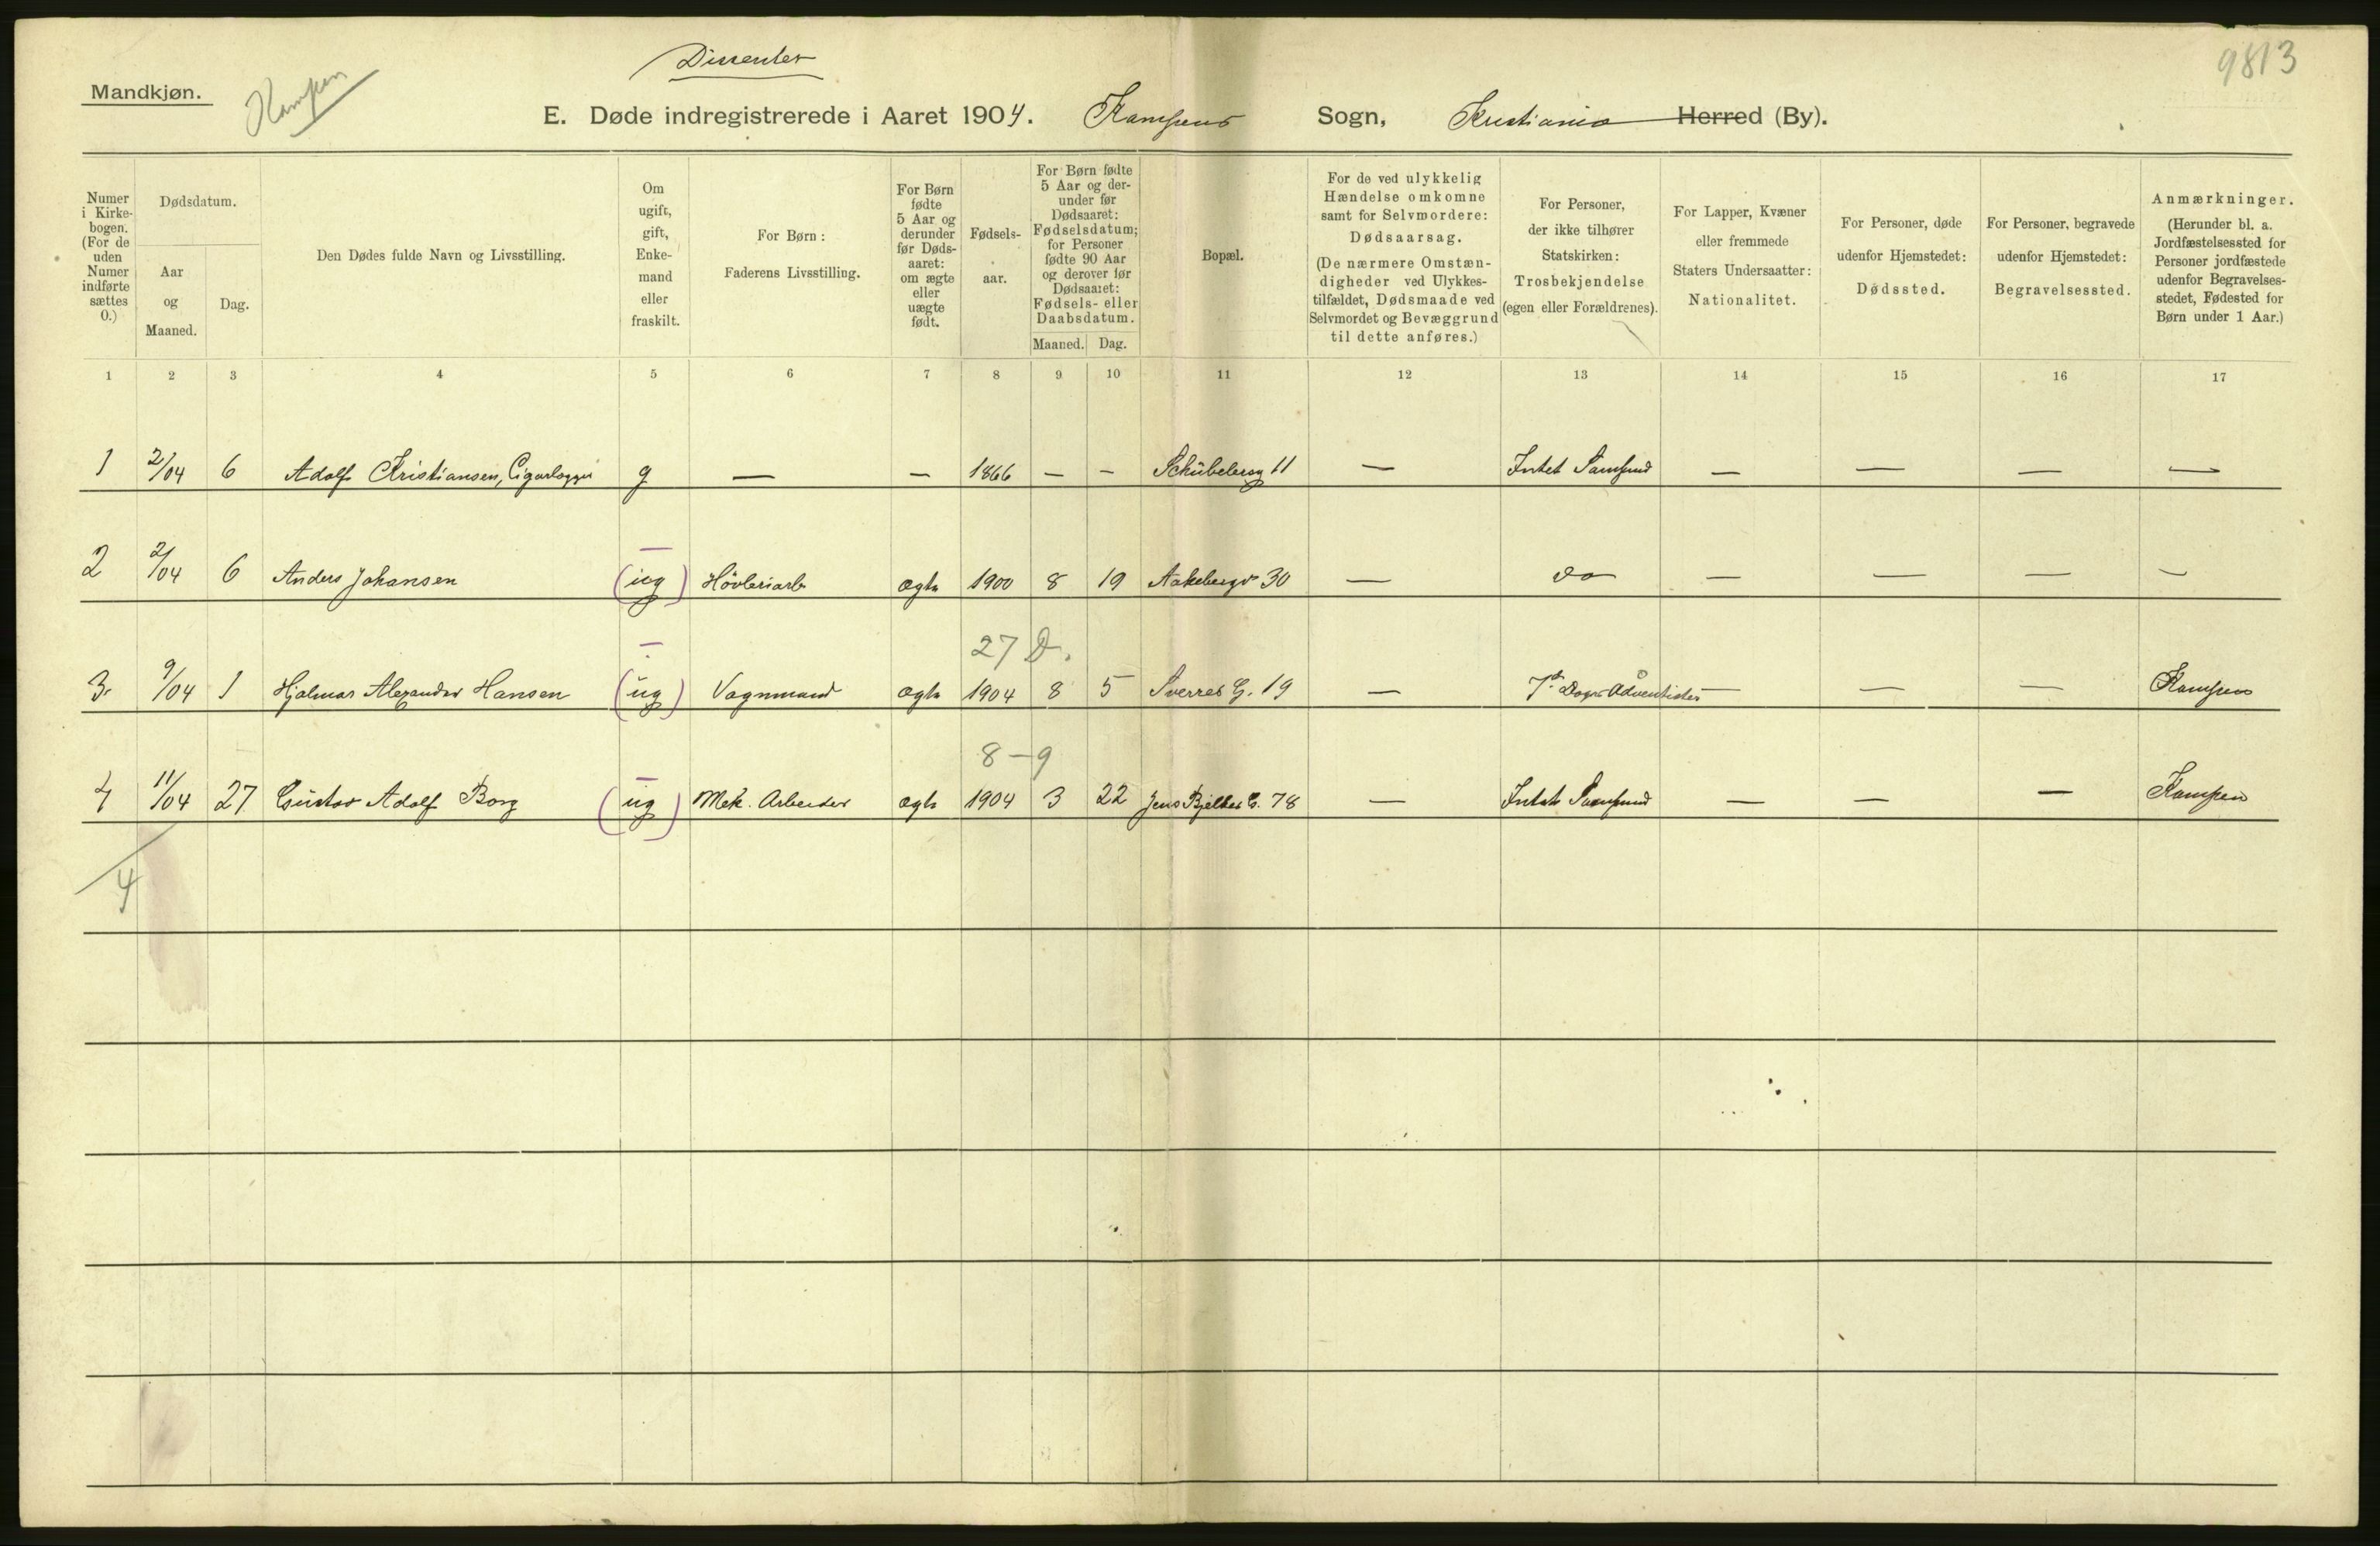 Dissenter
9813
Mandkjøn.
Kampen
E. Døde indregistrerede i Aaret 1904. Kampens Sogn, Kristiania Herred (By).
Numer i Kirke-bogen. (For de uden Numer indførte sættes 0.)
Dødsdatum.
Aar og Maaned.
Dag.
Den Dødes fulde Navn og Livsstilling.
Om ugift, gift, Enke-mand eller fraskilt.
For Børn: Faderens Livsstilling.
For Børn fødte 5 Aar og derunder før Døds-aaret: om ægte eller uægte født.
Fødsels-aar.
For Børn fødte 5 Aar og der-under før Dødsaaret: Fødselsdatum; for Personer fødte 90 Aar og derover før Dødsaaret: Fødsels- eller Daabsdatum.
Maaned. Dag.
Bopæl.
For de ved ulykkelig Hændelse omkomne samt for Selvmordere: Dødsaarsag. (De nærmere Omstæn-digheder ved Ulykkes-tilfældet, Dødsmaade ved Selvmordet og Bevæggrund til dette anføres.)
For Personer, der ikke tilhører Statskirken: Trosbekjendelse (egen eller Forældrenes).
For Lapper, Kvæner eller fremmede Staters Undersaatter: Nationalitet.
For Personer, døde udenfor Hjemstedet: Dødssted.
For Personer, begravede udenfor Hjemstedet: Begravelsessted.
Anmærkninger. (Herunder bl. a. Jordfæstelsessted for Personer jordfæstede udenfor Begravelses-stedet, Fødested for Børn under 1 Aar.)
1 2 3 4 5 6 7 8 9 10 11 12 13 14 15 16 17
1 2/04 6 Adolf Kristiansen, g — — 1866 — — Schübelersg 11 — Intet Samfund — — — —
2 2/04 6 Anders Johansen (ug) Høvleriarb ægte 1900 8 19 Aakebergv 30 — do — — — —
27 D.
3 9/04 1 Hjalmar Alexander Hansen (ug) Vognmand ægte 1904 8 5 Sverres G. 19 — 7d Dags Adventister — — — Kampen
8 – 9
4 11/04 27 Gustav Adolf Borg (ug) Mek. Arbeider ægte 1904 3 22 Jens Bjelkes G. 78 — Intet Samfund — — — Kampen
4